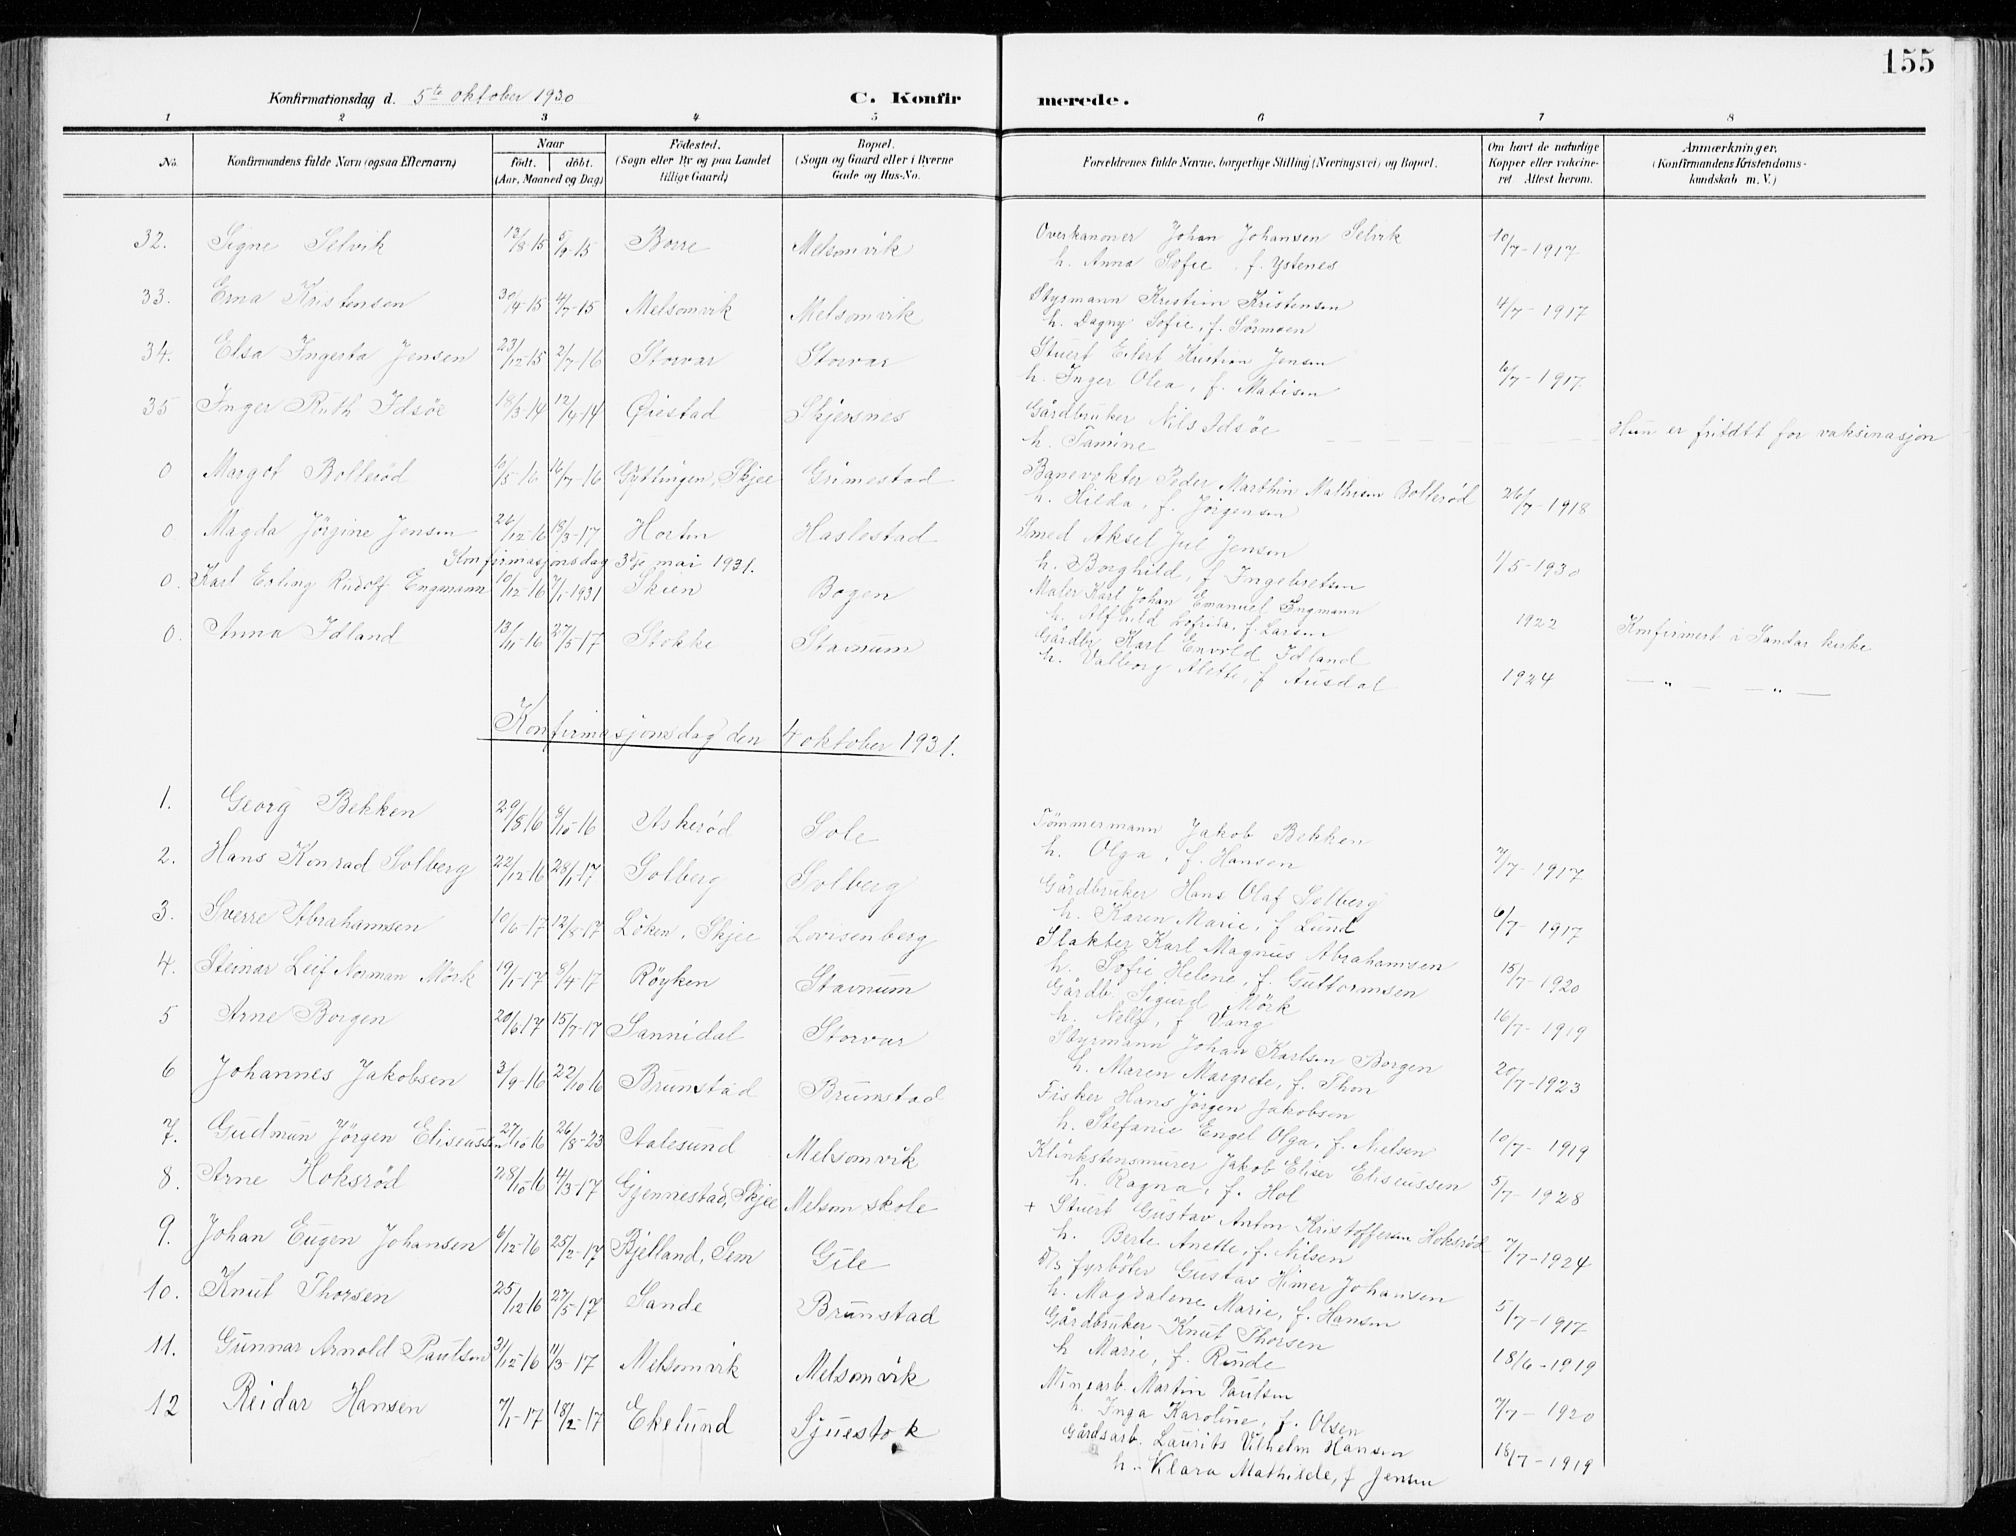 155
Konfirmationsdag d. 5te oktober 1930 C. Konfirmerede.
1 2 3 4 5 6 7 8
No. Konfirmandens fulde Navn (ogsaa Efternavn) Naar født. døbt. (Aar, Maaned og Dag) Fødested. (Sogn eller By og paa Landet tillige Gaard) Bopæl. (Sogn og Gaard eller i Byerne Gade og Hus-No. Forældrenes fulde Navne, borgerlige Stilling (Næringsvei) og Bopæl. Om havt de naturlige Kopper eller vakcineret Attest herom. Anmærkninger. (Konfirmandens Kristendomskundskab m. V.)
32. Signe Selvik 13/8-15 5/9-15 Borre Melsomvik Overkanoner Johan Johansen Selvik 10/7-1917
h. Anna Sofie f. Ystenes
33. Erna Kristensen 30/4-15 4/7-15 Melsomvik Melsomvik Styrmann Kristian Kristensen 4/7-1917
h. Dagny Sofie, f. Sörmoen
34. Elsa Ingerta Jensen 23/12-15 2/7-16 Storvar Storvar Stuert Eilert Kristian Jensen
h. Inger Olea, f. Matisen 6/7-1917
35 Inger Ruth Idsöe 18/3-14 12/4-14 Øiestad Skjersnes Gårdbruker Nils Idsöe Hun er fritatt for vaksinasjon
h. Tamine
0 Margot Bollerød 16/5-16 16/7-16 Gyttingen, Skjee Grimestad Banevokter Peder Marthin Mathisen Bollerød 26/7-1918
h. Hilda, f. Jörgensen
0 Magda Jörgine Jensen 26/12-16 18/3-17 Horten Haslestad Smed Aksel Jul Jensen
h. Borghild, f. Ingebretsen 1/5-1930
Konfirmasjonsdag 3dje mai 1931.
0. Karl Erling Rudolf Engmann 10/12-16 7/1-1931 Skien Bogen Maler Karl Johan Emanuel Engmann 1922 Konfirmert i Sandar kirke
h. Alfhild Lofrida, f. Larsen
0. Anna Idland 13/11-16 27/5-17 Stokke Stavnum Gårdbr Karl Envold Idland 1924 — " — — " —
h. Valborg Alette, f. Ausdal
Konfirmasjonsdag den 4 oktober 1931.
1. Georg Bekken 29/8-16 8/10-16 Askerød Sole Tömmermann Jakob Bekken
h. Olga, f. Hansen 7/7-1917
2. Hans Konrad Solberg 22/12-16 28/1-17 Solberg Solberg Gårdbruker Hans Olaf Solberg
h. Karen Marie, f. Lund 6/7-1917
3. Sverre Abrahamsen 10/6-17 12/8-17 Löken, Skjee Lovisenberg Slakter Karl Magnus Abrahamsen
h. Sofie Helene, f. Guttormsen 15/7-1920
4. Steinar Leif Norman Mörk 19/1-17 9/4-17 Röyken Stavnum Gårdb. Sigurd Mörk
h. Nelly, f. Vang 16/7-1919
5 Arne Borgen 20/6-17 15/7-17 Sannidal Storvar Styrmann Johan Karlsen Borgen
h. Maren Margrete, f. Thon 20/7-1923
6 Johannes Jakobsen 3/9-16 22/10-16 Brunstad Brunstad Fisker Hans Jörgen Jakobsen
h. Stefanie Engel Olga, f. Nielsen 10/7-1919
7. Gudmun Jörgen Eliseussen 27/10-16 26/8-23 Aalesund Melsomvik Klinkstensmurer Jakob Eliser Eliseussen
h. Ragna, f. Hol 5/7-1928
8. Arne Hoksrød 28/10-16 4/3-17 Gjennestad, Skjee Melsom skole + Stuert Gustav Anton Kristoffersen Hoksrød
h. Berte Anette, f. Nilsen 7/7-1924
9. Johan Eugen Johansen 6/12-16 25/2-17 Bjelland, Sem Gile D/S fyrböter Gustav Himer Johansen
h. Magdalene Marie, f. Hansen 5/7-1917
10. Knut Thorsen 25/12-16 27/5-17 Sande Brunstad Gårdbruker Knut Thorsen
h Marie, f. Rinde 18/6-1919
11. Gunnar Arnold Paulsen 31/12-16 11/3-17 Melsomvik Melsomvik Minearb. Martin Paulsen
h. Inga Karoline, f. Olsen 7/7-1920
12 Reidar Hansen 7/1-17 18/2-17 Ekelund Sjuestok Gårdsarb. Laurits Vilhelm Hansen 18/7-1919
h. Klara Mathilde, f Jensen